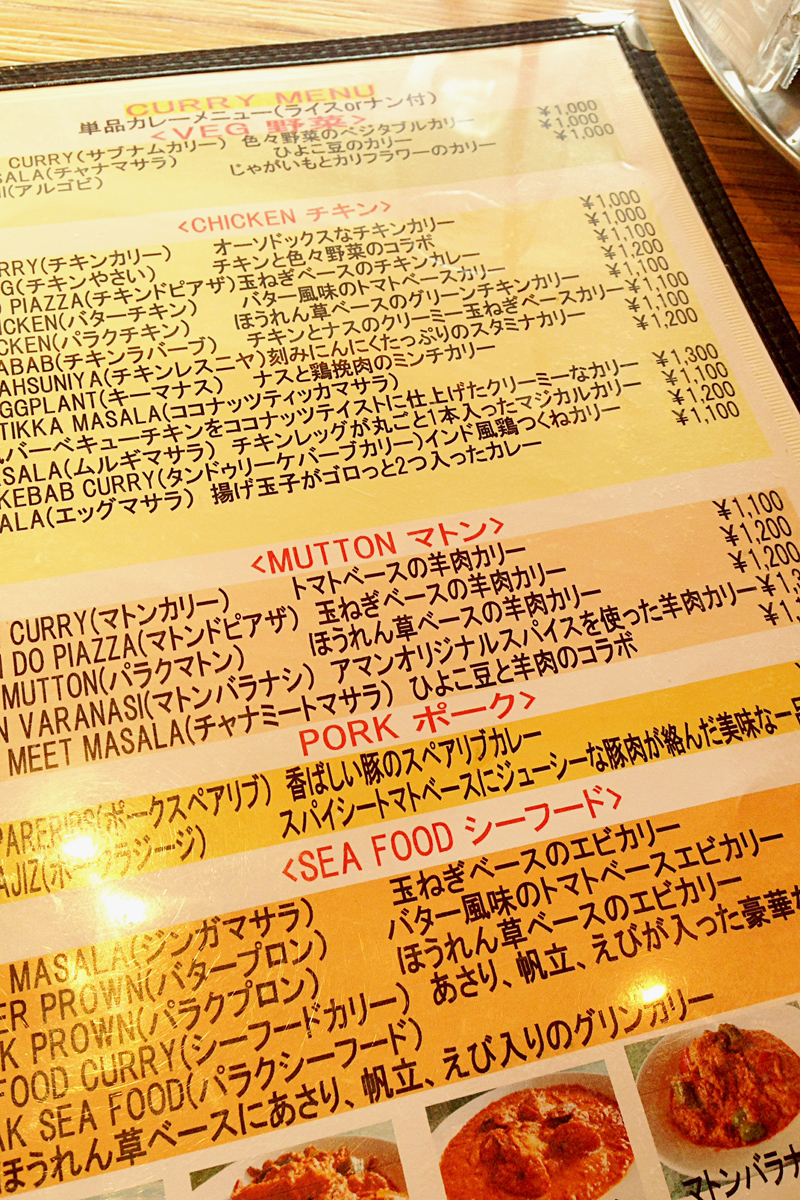 CURRY MENU
単品カレーメニュー(ライスorナン付)
<VEG 野菜>
CURRY(サブナムカリー) 色々野菜のベジタブルカリー ¥1,000
SALA(チャナマサラ) ひよこ豆のカリー ¥1,000
I(アルゴビ) じゃがいもとカリフラワーのカリー ¥1,000
<CHICKEN チキン>
RRY(チキンカリー) オーソドックスなチキンカリー ¥1,000
G(チキンやさい) チキンと色々野菜のコラボ ¥1,000
PIAZZA(チキンドピアザ)玉ねぎベースのチキンカレー ¥1,100
ICKEN(バターチキン) バター風味のトマトベースカリー ¥1,200
CKEN(パラクチキン) ほうれん草ベースのグリーンチキンカリー ¥1,100
ABAB(チキンラバーブ) チキンとナスのクリーミー玉ねぎベースカリー ¥1,100
AHSUNIYA(チキンレスニヤ)刻みにんにくたっぷりのスタミナカリー ¥1,100
EGGPLANT(キーマナス) ナスと鶏挽肉のミンチカリー ¥1,200
TIKKA MASALA(ココナッツティッカマサラ)
バーベキューチキンをココナッツテイストに仕上げたクリーミーなカリー ¥1,300
SALA(ムルギマサラ) チキンレッグが丸ごと1本入ったマジカルカリー ¥1,100
KEBAB CURRY(タンドゥリーケバーブカリー)インド風鶏つくねカリー ¥1,200
ALA(エッグマサラ) 揚げ玉子がゴロっと2つ入ったカレー ¥1,100
<MUTTON マトン>
CURRY(マトンカリー) トマトベースの羊肉カリー ¥1,100
DO PIAZZA(マトンドピアザ) 玉ねぎベースの羊肉カリー ¥1,200
MUTTON(パラクマトン) ほうれん草ベースの羊肉カリー ¥1,200
N VARANASI(マトンバラナシ) アマンオリジナルスパイスを使った羊肉カリー ¥1,3
MEET MASALA(チャナミートマサラ) ひよこ豆と羊肉のコラボ ¥1,
PORK ポーク>
PARERIBS(ポークスペアリブ) 香ばしい豚のスペアリブカレー
AJIZ(ポークラジージ) スパイシートマトベースにジューシーな豚肉が絡んだ美味な一
<SEA FOOD シーフード>
MASALA(ジンガマサラ) 玉ねぎベースのエビカリー
ER PROWN(バタープロン) バター風味のトマトベースエビカリー
K PROWN(パラクプロン) ほうれん草ベースのエビカリー
FOOD CURRY(シーフードカリー) あさり、帆立、えびが入った豪華
AK SEA FOOD(パラクシーフード)
ほうれん草ベースにあさり、帆立、えび入りのグリンカリー
マトンバラナ